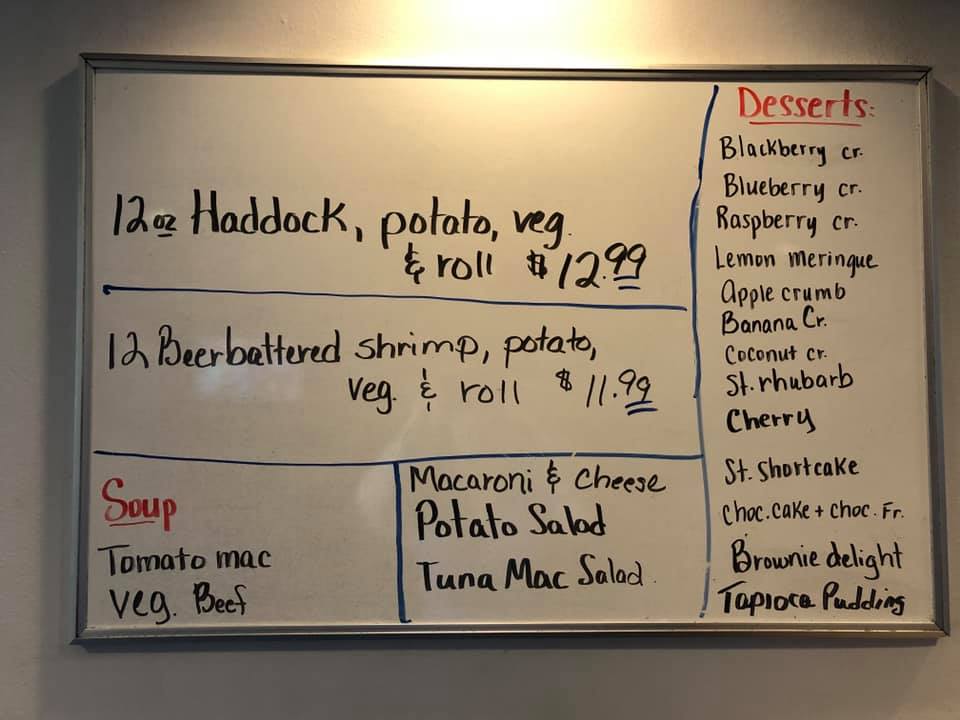 12oz Haddock, potato, veg.
& roll $12.99
12 Beerbattered shrimp, potato,
veg. & roll $11.99
Soup
Tomato mac
Veg. Beef
Macaroni & Cheese
Potato Salad
Tuna Mac Salad
Desserts:
Blackberry cr.
Blueberry cr.
Raspberry cr.
Lemon meringue
Apple crumb
Banana Cr.
Coconut cr.
St. rhubarb
Cherry
St. shortcake
Choc. cake + choc. Fr.
Brownie delight
Tapioca Pudding